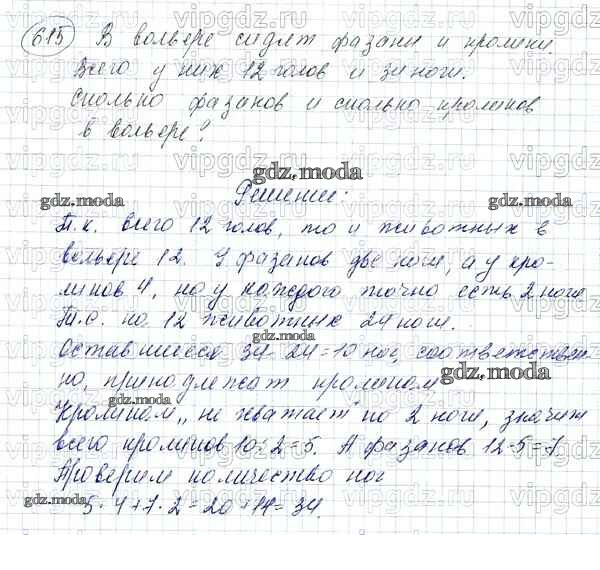 615 В вольере сидят фазаны и кролики.
Всего у них 12 голов и 34 ноги.
Сколько фазанов и сколько кроликов
в вольере?
gdz.moda
Решение:
gdz.moda gdz.moda gdz.moda
Т.к. всего 12 голов, то и животных в
вольере 12. У фазанов две ноги, а у кро-
ликов 4, но у каждого точно есть 2 ноги
gdz.moda
Т.е. на 12 животных 24 ноги.
gdz.moda
Оставшиеся 34-24=10 ног, соответствен-
но, принадлежат кроликам
gdz.moda
"Кроликам" не хватает по 2 ноги, значит
всего кроликов 10:2=5. А фазанов 12-5=7.
Проверим количество ног
gdz.moda gdz.moda
5·4+7·2=20+14=34.
gdz.moda
vipgdz.ru